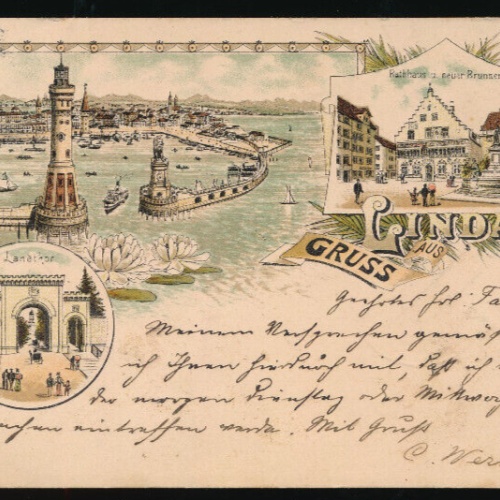 Rathhaus u. neuer Brunnen
LINDA
GRUSS AUS
Landthor
Geehrtes Frl. F
Meinem Versprechen gemäß
ich Ihnen hiedurch mit, daß ich
der morgen Dienstag oder Mittwoch
eintreffen werde. Mit Gruß
C. Wer